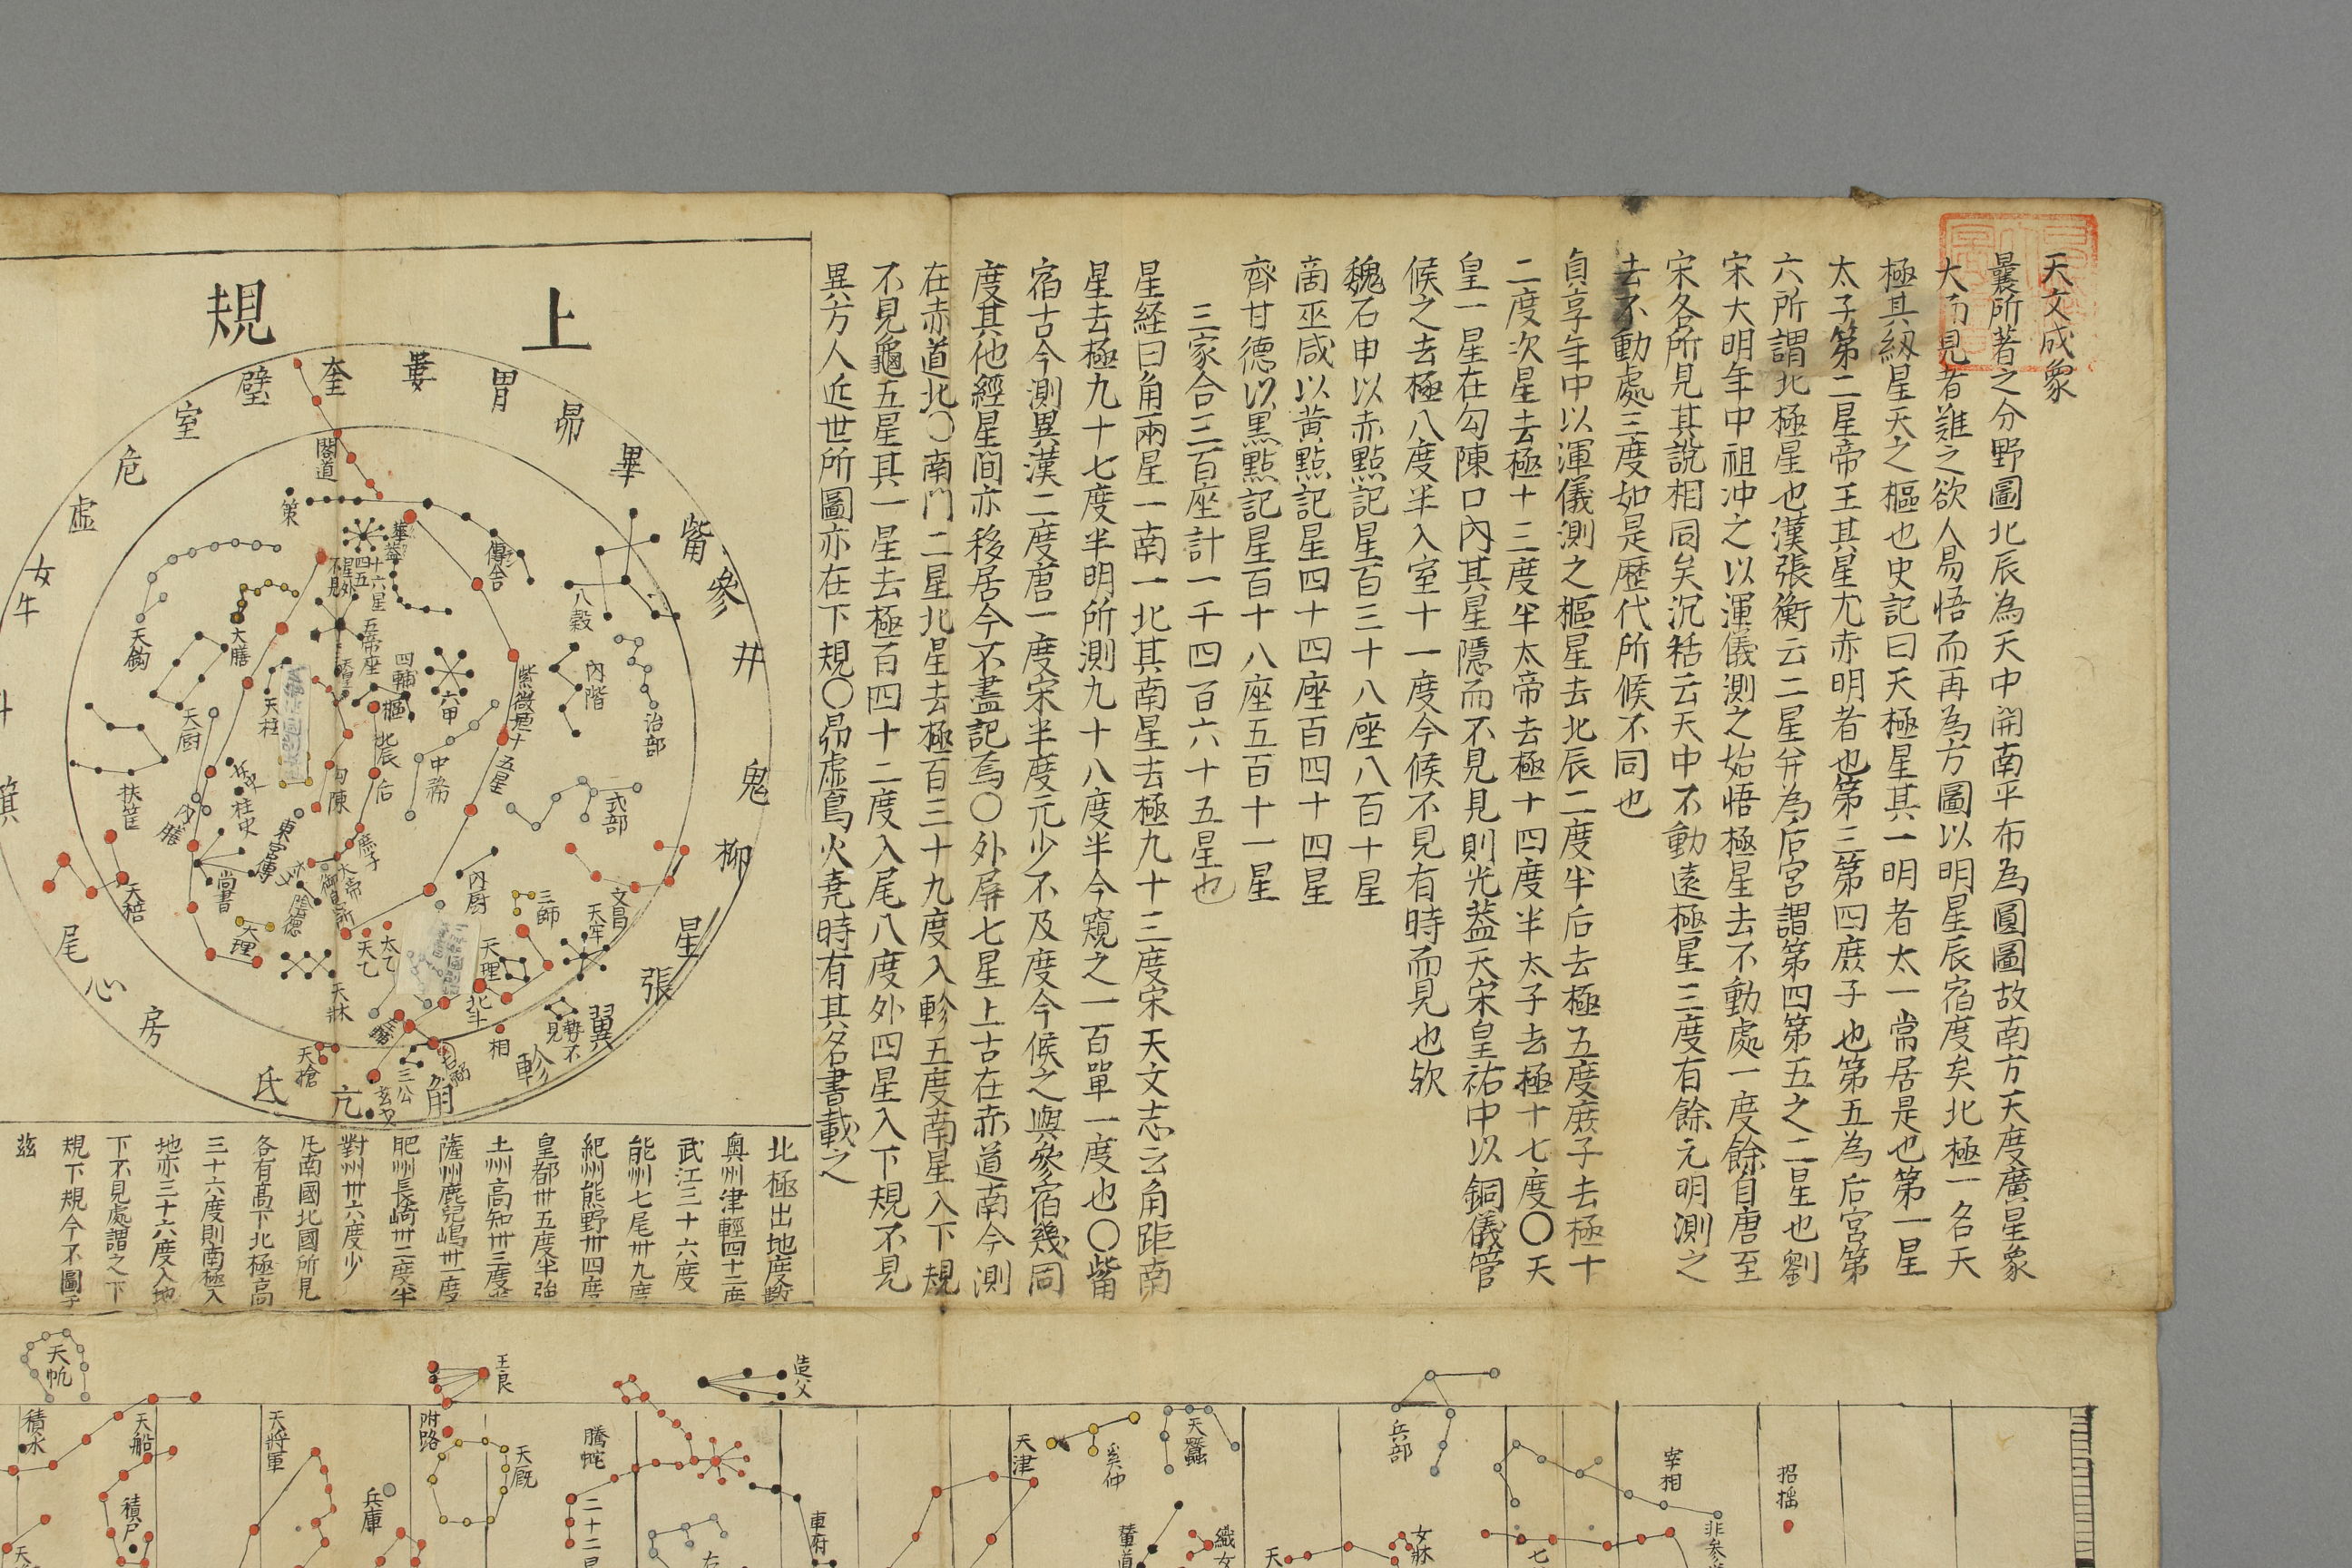 天文成象
曩所著之分野圖北辰為天中開南平布為圓圖故南方天度廣星象
大而見者難之欲人易悟而再為方圖以明星辰宿度矣北極一名天
極其紐星天之樞也史記曰天極星其一明者太一常居是也第一星
太子第二星帝王其星尤赤明者也第三第四庶子也第五為后宮第
六所謂北極星也漢張衡云二星并為后宮謂第四第五之二星也劉
宋大明年中祖冲之以渾儀測之始悟極星去不動處一度餘自唐至
宋各所見其說相同矣沉括云天中不動遠極星三度有餘元明測之
去不動處三度如是歷代所候不同也
貞享年中以渾儀測之樞星去北辰二度半后去極五度庶子去極十
二度次星去極十三度半太帝去極十四度半太子去極十七度〇天
皇一星在勾陳口內其星隱而不見見則光蓋天宋皇祐中以銅儀管
候之去極八度半入室十一度今候不見有時而見也欤
魏石申以赤點記星百三十八座八百十星
商巫咸以黃點記星四十四座百四十四星
齊甘德以黑點記星百十八座五百十一星
三家合三百座計一千四百六十五星也
星経曰角兩星一南一北其南星去極九十三度宋天文志云角距南
星去極九十七度半明所測九十八度半今窺之一百單一度也〇觜
宿古今測異漢二度唐一度宋半度元少不及度今候之與參宿幾同
度其他經星間亦移居今不盡記焉〇外屏七星上古在赤道南今測
在赤道北〇南門二星北星去極百三十九度入軫五度南星入下規
不見龜五星其一星去極百四十二度入尾八度外四星入下規不見
異方人近世所圖亦在下規〇昴虛鳥火堯時有其名書載之
上規
奎
婁
胃
昴
畢
觜
參
井
鬼
柳
星
張
翼
軫
角
亢
氐
房
心
尾
箕
斗
牛
女
虛
危
室
壁
閣道
策
華蓋
十六星
傳舍
八穀
內階
治部
五帝座
四輔
六甲
紫微垣十五星
樞
北辰
后
中務
勾陳
庶子
大膳
天鈎
天柱
天厨
柱史
扶筐
尚書
陰德
大理
天棓
式部
內厨
三師
文昌
天牢
天理
太乙
天乙
天牀
北斗
相
天槍
三公
玄戈
北極出地度數
奧州津輕四十二度
武江三十六度
能州七尾卅九度
紀州熊野卅四度
皇都卅五度半強
土州高知卅三度
薩州鹿兒嶋卅一度
肥州長崎卅二度半
對州卅六度少
凡南國北國所見
各有高下北極高
三十六度則南極入
地亦三十六度入地
下不見處謂之下
規下規今不圖于
茲
招搖
宰相
兵部
天蠶
奚仲
天津
造父
王良
附路
天廐
騰蛇
二十二星
車府
兵庫
天將軍
天船
積尸
積水
天帆
女牀
織女